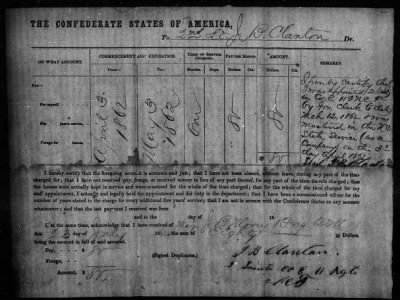 THE CONFEDERATE STATES OF AMERICA,
To 2nd Lt J B Clanton Dr.
ON WHAT ACCOUNT.
COMMENCEMENT AND EXPIRATION.
TERM OF SERVICE CHARGED.
PAY PER MONTH.
AMOUNT.
REMARKS.
From—
To—
Months.
Days.
Dolls.
Cts.
Dolls.
Cts.
Pay—
For myself
For years' service,
Forage for horses
April 3. 1862
May 3 1862
One
80
80
I hereby certify that
I was appointed 2nd Lt
in Co C 11 N C
by Gov. Clark to date
Mch 12, 1862 & was
mustered in the
State Service (as a
Company on the 3d
April
I hereby certify that the foregoing account is accurate and just; that I have not been absent, without leave, during any part of the time
charged for; that I have not received pay, forage, or received money in lieu of any part thereof, for any part of the time therein charged; that
the horses were actually kept in service and were mustered for the whole of the time charged; that for the whole of the time charged for my
staff appointment, I actually and legally held the appointment and did duty in the department; that I have been a commissioned officer for the
number of years stated in the charge for every additional five years' service; that I am not in arrears with the Confederate States on any account
whatsoever; and that the last payment I received was from
and to the day of 18
I, at the same time, acknowledge that I have received of
this day of 18 the sum of Dollars,
being the amount in full of said account.
Pay - $ 80
Forage -
Amount - $ 80
(Signed Duplicates.)
J B Clanton